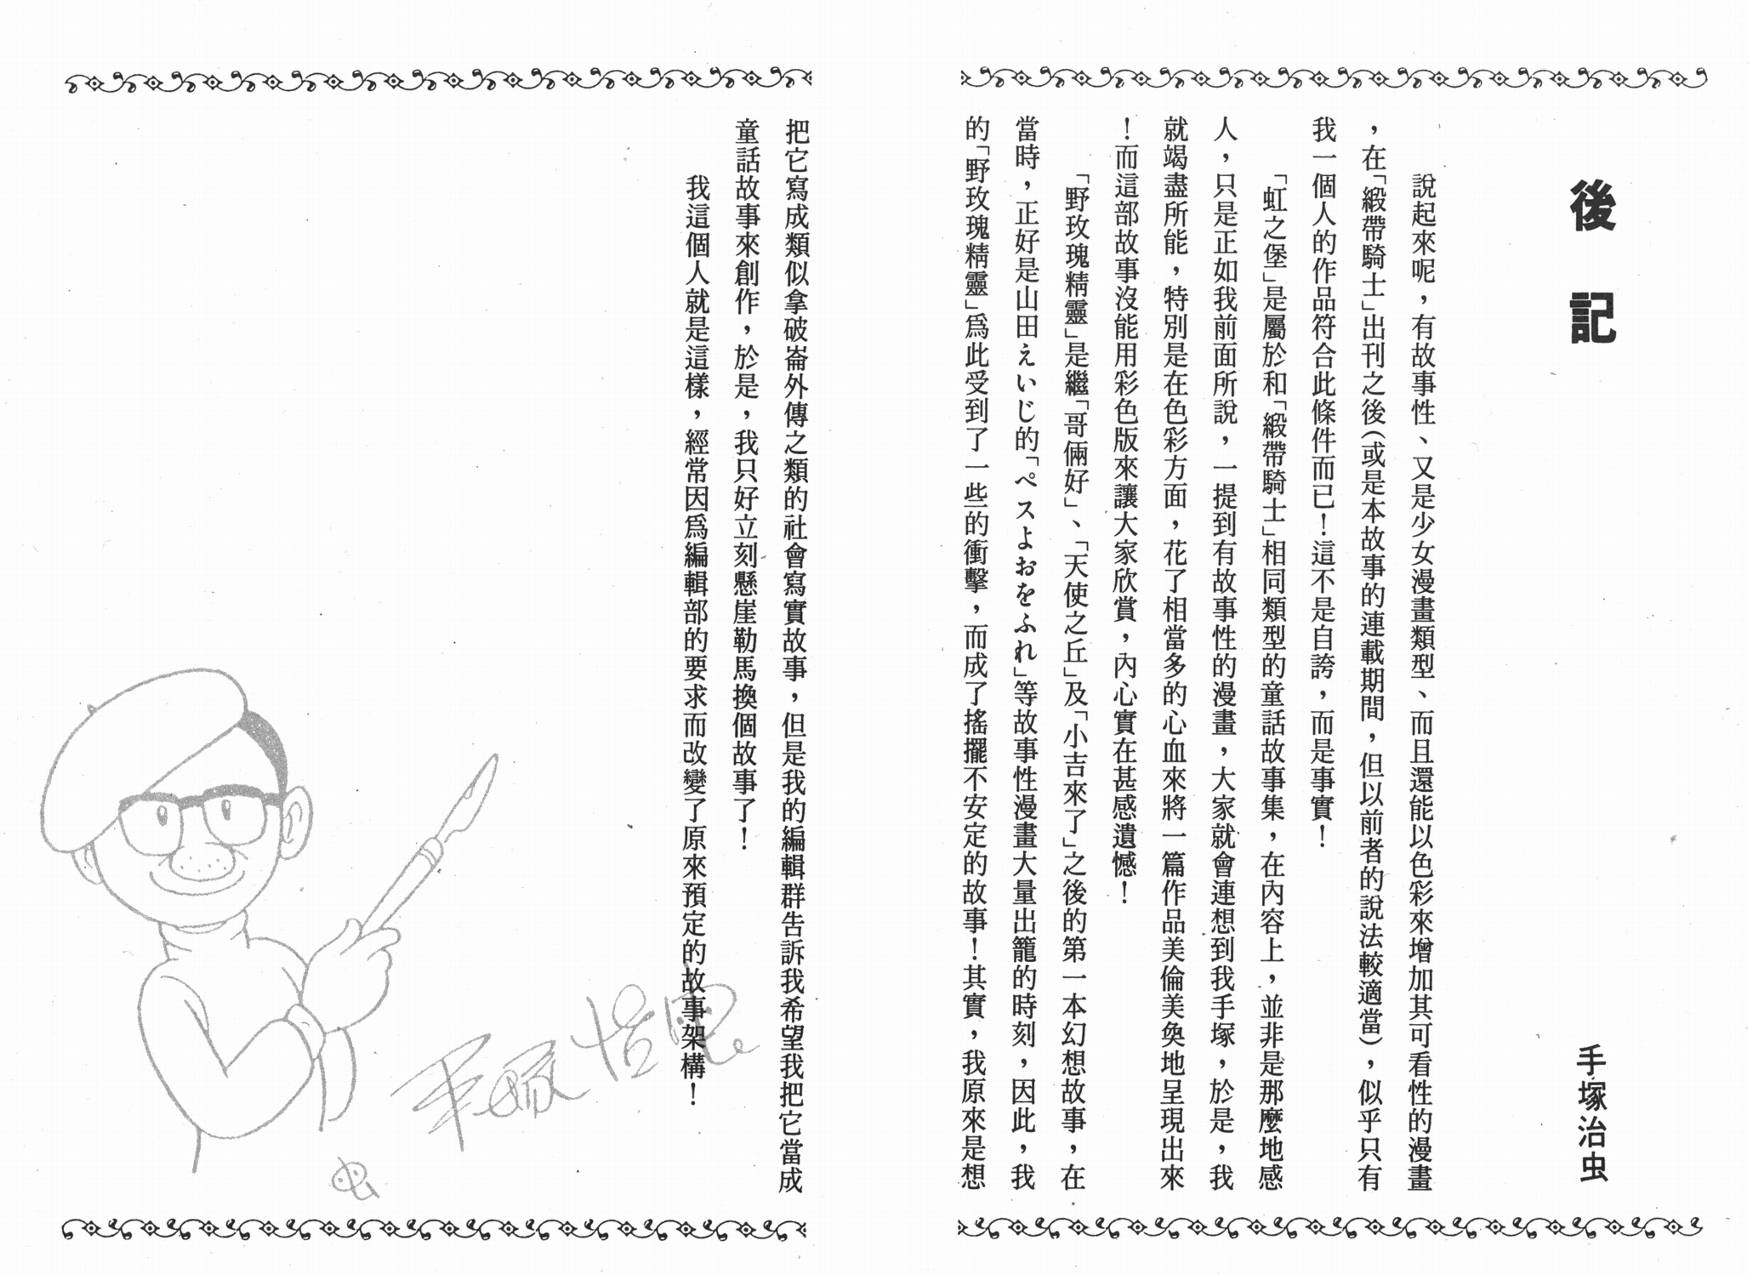 後記
手塚治虫
說起來呢，有故事性、又是少女漫畫類型、而且還能以色彩來增加其可看性的漫畫
，在「緞帶騎士」出刊之後（或是本故事的連載期間，但以前者的說法較適當），似乎只有
我一個人的作品符合此條件而已！這不是自誇，而是事實！
「虹之堡」是屬於和「緞帶騎士」相同類型的童話故事集，在內容上，並非是那麼地感
人，只是正如我前面所說，一提到有故事性的漫畫，大家就會連想到我手塚，於是，我
就竭盡所能，特別是在色彩方面，花了相當多的心血來將一篇作品美倫美奐地呈現出來
！而這部故事沒能用彩色版來讓大家欣賞，內心實在甚感遺憾！
「野玫瑰精靈」是繼「哥倆好」、「天使之丘」及「小吉來了」之後的第一本幻想故事，在
當時，正好是山田えいじ的「ペスよおをふれ」等故事性漫畫大量出籠的時刻，因此，我
的「野玫瑰精靈」為此受到了一些的衝擊，而成了搖擺不安定的故事！其實，我原來是想
把它寫成類似拿破崙外傳之類的社會寫實故事，但是我的編輯群告訴我希望我把它當成
童話故事來創作，於是，我只好立刻懸崖勒馬換個故事了！
我這個人就是這樣，經常因為編輯部的要求而改變了原來預定的故事架構！
手塚治虫